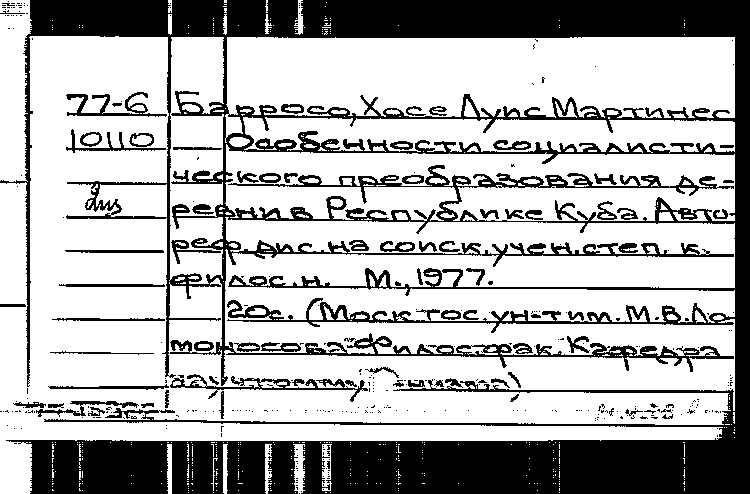 77-6 Барросо, Хосе Луис Мартинес
10110 Особенности социалисти-
ческого преобразования де-
ревни в Республике Куба. Авто-
реф. дис. на соиск. учен. степ. к.
филос. н. М., 1977.
20с. (Моск. гос. ун-т им. М.В. Ло-
моносова. Филос. фак. Кафедра